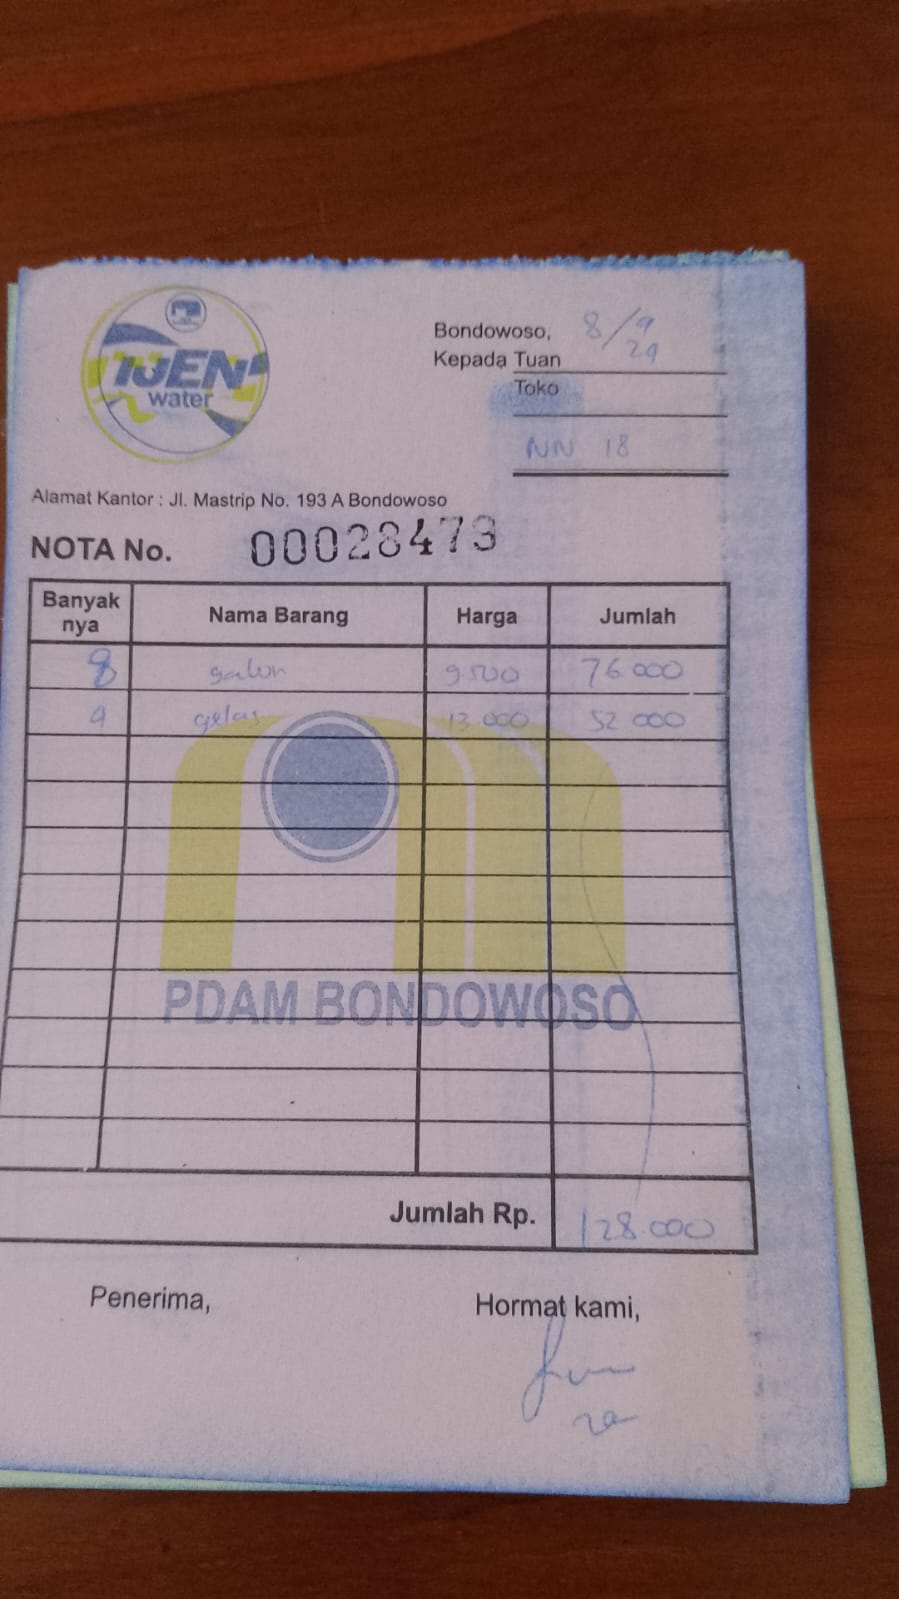 IJEN
water
Bondowoso, 8/9
24
Kepada Tuan
Toko
NN 18
Alamat Kantor : Jl. Mastrip No. 193 A Bondowoso
NOTA No. 00028473
Banyak nya Nama Barang Harga Jumlah
8 galon 9.500 76.000
4 gelas 13.000 52 000
PDAM BONDOWOSO
Jumlah Rp. 128.000
Penerima, Hormat kami,